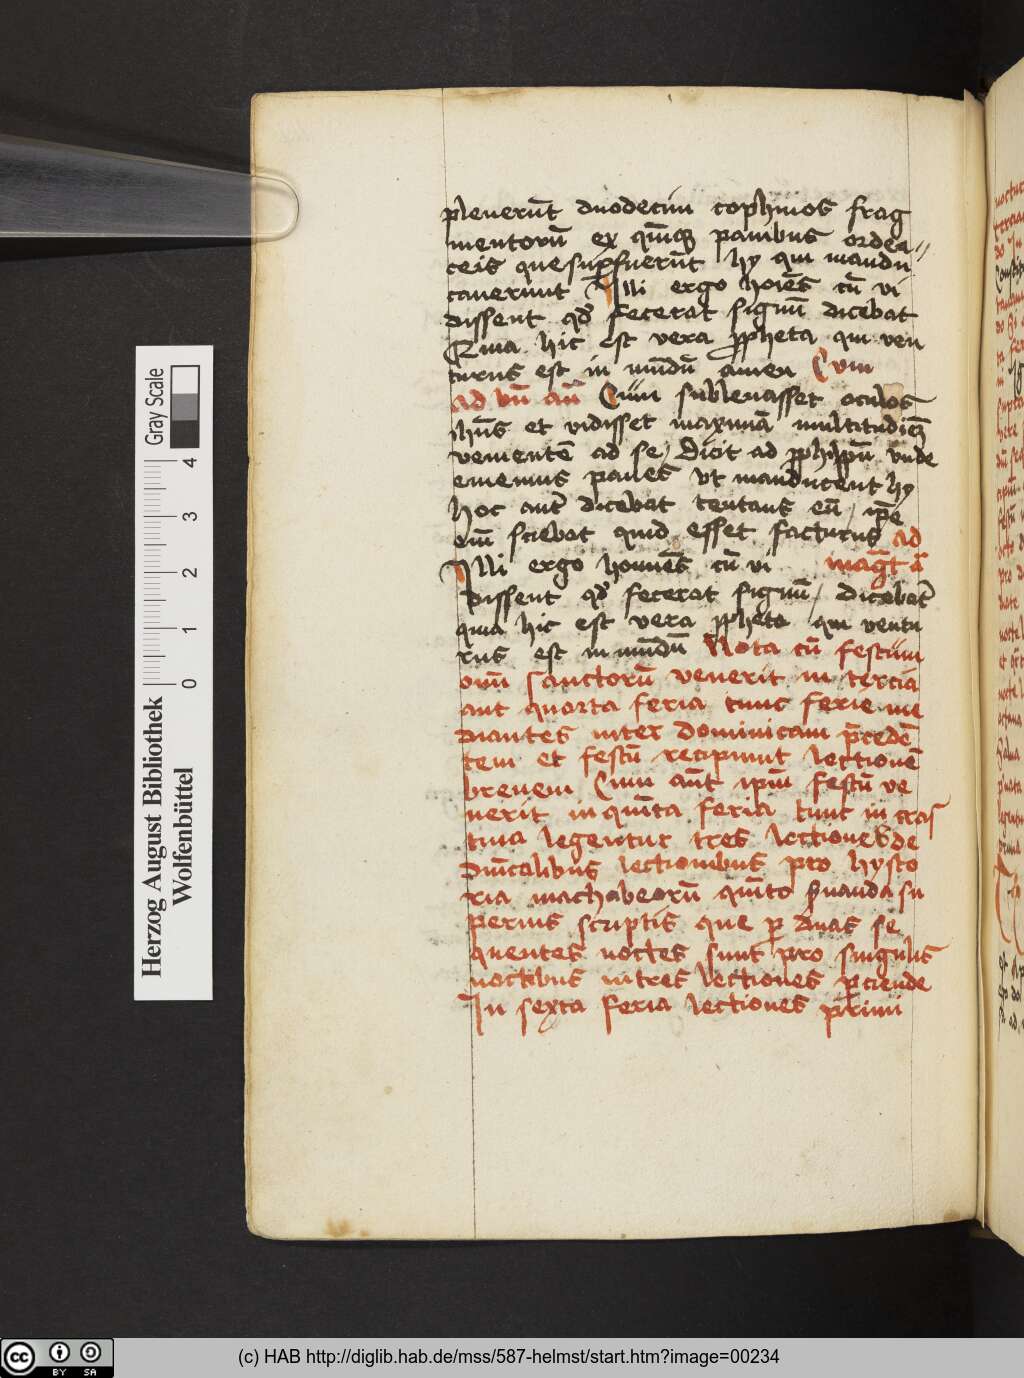 plenerūt duodecim cophinos frag
mentorū ex qͥnqꝫ panibus ordea
ceis que suꝑfuerūt hy qui mandu
cauerunt Illi ergo hoīes cū vi
dissent qd fecerat signū dicebāt
Quia hic est vere ꝓpheta qui ven
turus est in mūdū amen Cum
ad vn̄ añ Cum subleuasset oculos
ihūs et vidisset maximā multitudīeꝫ
venientē ad se / Dicit ad philippū vnde
ememus panes vt manducent hy
hoc aut̄ dicebat temtans eū / ip̄e
eīm sciebat quid esset facturus ad
Illi ergo homīes cū vi magt̄ a
dissent qd fecerat signū / dicebāt
quia hic est vere ꝓpheta qui ventu
rus est in mūdū Nota cū festum
om̄ sanctorū venerit in tercia
aut quarta feria tunc ferie me
diantes inter dominicam p̄cedē
tem et festū recipiunt lectionē
breuem Cum aūt ip̄m festū ve
nerit in quīta feria tunc in cras
tina legentur tres lectiones de
dn̄icalibus lectionibus pro hysto
ria machabeorū quīto suanda su
perius scriptis que per duas se
quentes noctes sunt pro singulis
noctibus in tres lectiones ꝑciende
In sexta feria lectiones primi
Herzog August Bibliothek
Wolfenbüttel
Gray Scale
0 1 2 3 4
(c) HAB http://diglib.hab.de/mss/587-helmst/start.htm?image=00234
cc BY SA